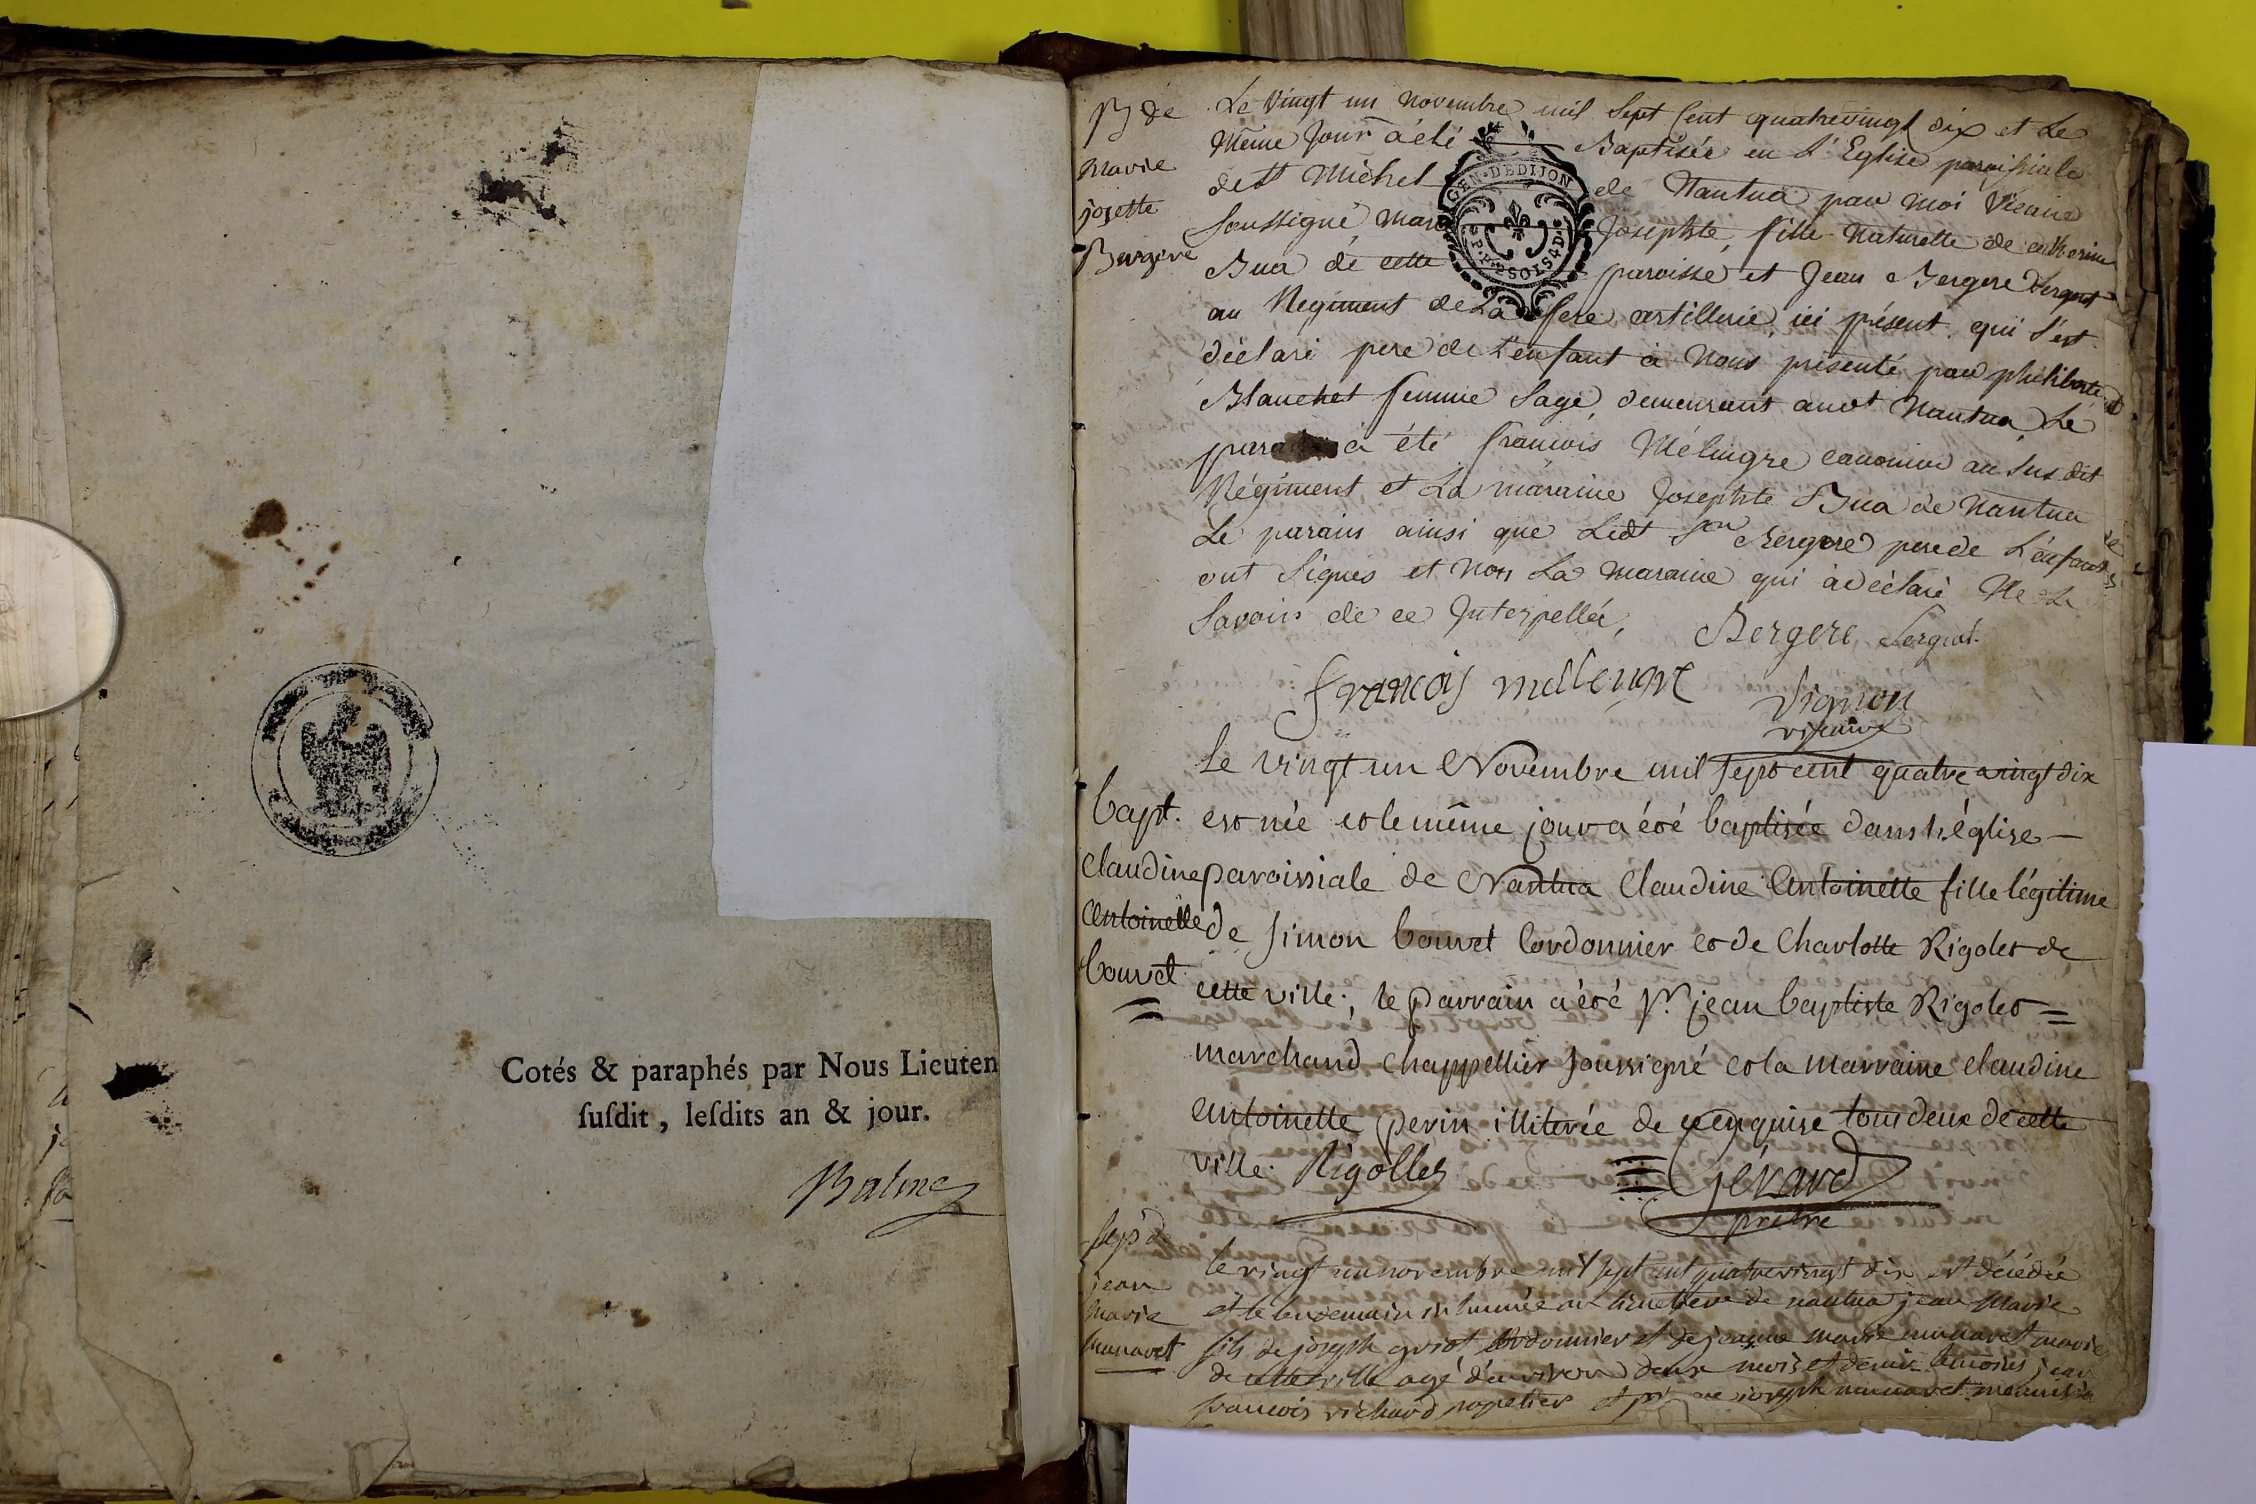 Cotés & paraphés par Nous Lieuten
ſuſdit, leſdits an & jour.
Balme
B de
marie
josette
Bergere
Le Vingt un Novembre mil Sept Cent quatrevingt dix et Le
Même Jour à été Baptisée en L'Eglise paroissiale
de St Michel de Nantua par moi Vicaire
Soussigné Marie Josephte, fille Naturelle de catherine
Bua de cette paroisse et Jean Bergere Sergent
au Regiment de La fere artillerie, ici présent qui s'est
déclaré pere de L'enfant à Nous présenté par philiberte
Blanchet femme Sage, demeurant audt Nantua, Le
à été francois Mélingre canonier au Susdit
Régiment, et La maraine Josephte Bua de Nantua
Le parain ainsi que Ledt Jean Bergere pere de L'enfant
ont Signés et Non La maraine qui à déclaré Ne Le
Savoir de ce Interpellée,
Bergere Sergent
GEN. DE DIJON
SOLS 4 D.
francois
Vignon
vicaire
bapt.
claudine
antoinette
bouvet
Le vingt un Novembre mil sept cent quatre vingt dix
est née et le même jour a été baptisée dans l'église
paroissiale de Nantua Claudine Antoinette fille légitime
de simon bouvet Cordonnier et de Charlotte Rigolet de
cette ville; le parrain a été Sr. jean baptiste Rigolet =
marchand Chappellier soussigné et la marraine claudine
antoinette perin illiterée de ce enquise tous deux de cette
ville. Rigollet
Gérard
prêtre
sep de
jean
marie
le vingt un novembre mil sept cent quatre vingt dix est décédée
et le lendemain inhumée au cimetiere de nantua jean marie
fils de joseph cordonnier et de jeanne marie
de cette ville agé d'environ deux mois et demi temoins jean
francois richard papetier et joseph